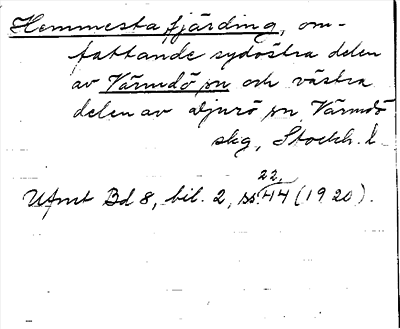 Hemmesta fjärding, om-
fattande sydöstra delen
av Värmdö sn och västra
delen av Djurö sn, Värmdö
skg, Stockh. l.
22,
Utmt Bd 8, bil. 2, ss. 44 (1920).